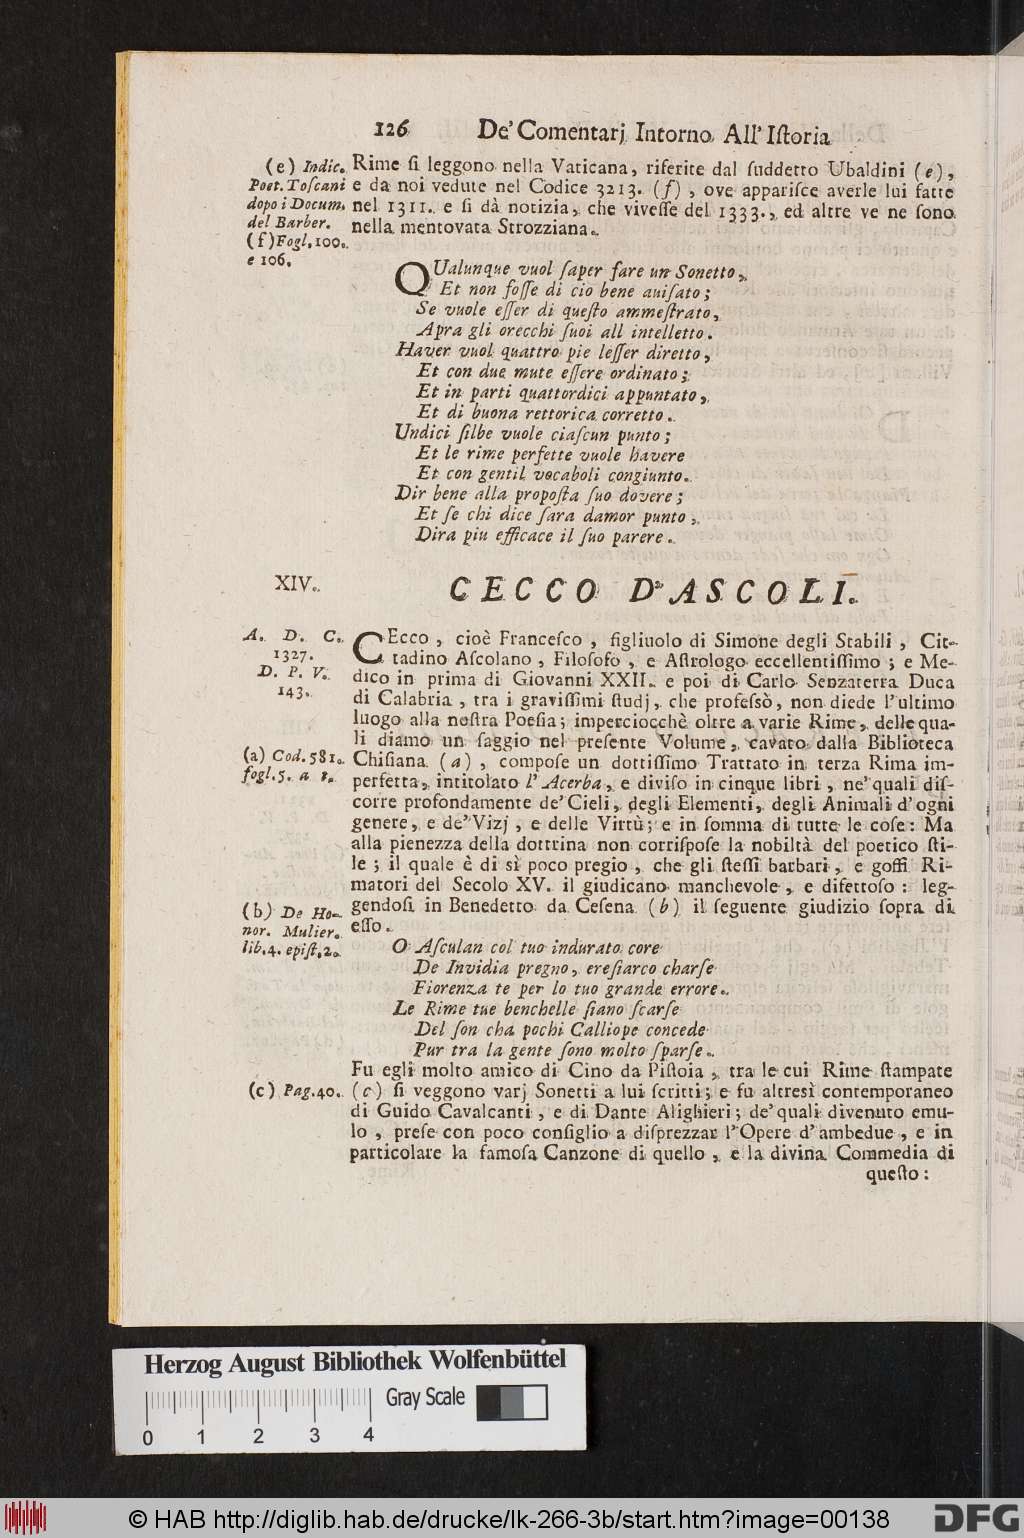 126 De' Comentarj Intorno All' Iſtoria
(e) Indic. Poet. Toſcani dopo i Docum. del Barber.
(f) Fogl. 100. e 106.
Rime ſi leggono nella Vaticana, riferite dal ſuddetto Ubaldini (e),
e da noi vedute nel Codice 3213. (f), ove appariſce averle lui fatte
nel 1311. e ſi dà notizia, che viveſſe del 1333., ed altre ve ne ſono
nella mentovata Strozziana.
QUalunque vuol ſaper fare un Sonetto,
Et non foſſe di cio bene auiſato;
Se vuole eſſer di queſto ammeſtrato,
Apra gli orecchi ſuoi all intelletto.
Haver vuol quattro pie leſſer diretto,
Et con due mute eſſere ordinato;
Et in parti quattordici appuntato,
Et di buona rettorica corretto.
Undici ſilbe vuole ciaſcun punto;
Et le rime perfette vuole havere
Et con gentil vocaboli congiunto.
Dir bene alla propoſta ſuo dovere;
Et ſe chi dice ſara damor punto,
Dira piu efficace il ſuo parere.
XIV. CECCO D'ASCOLI.
A. D. C.
1327.
D. P. V.
143.
CEcco, cioè Franceſco, figliuolo di Simone degli Stabili, Cit-
tadino Aſcolano, Filoſofo, e Aſtrologo eccellentiſſimo; e Me-
dico in prima di Giovanni XXII. e poi di Carlo Senzaterra Duca
di Calabria, tra i graviſſimi ſtudj, che profeſsò, non diede l'ultimo
luogo alla noſtra Poeſia; imperciocchè oltre a varie Rime, delle qua-
li diamo un ſaggio nel preſente Volume, cavato dalla Biblioteca
(a) Cod. 581.
fogl. 5. a t.
Chiſiana (a), compoſe un dottiſſimo Trattato in terza Rima im-
perfetta, intitolato l' Acerba, e diviſo in cinque libri, ne' quali diſ-
corre profondamente de' Cieli, degli Elementi, degli Animali d' ogni
genere, e de' Vizj, e delle Virtù; e in ſomma di tutte le coſe: Ma
alla pienezza della dottrina non corriſpoſe la nobiltà del poetico ſti-
le; il quale è di sì poco pregio, che gli ſteſſi barbari, e goffi Ri-
matori del Secolo XV. il giudicano manchevole, e difettoſo: leg-
(b) De Ho-
nor. Mulier.
lib. 4. epiſt. 2.
gendoſi in Benedetto da Ceſena (b) il ſeguente giudizio ſopra di
eſſo.
O Aſculan col tuo indurato core
De Invidia pregno, ereſiarco charſe
Fiorenza te per lo tuo grande errore.
Le Rime tue benchelle ſiano ſcarſe
Del ſon cha pochi Calliope concede
Pur tra la gente ſono molto ſparſe.
Fu egli molto amico di Cino da Piſtoia, tra le cui Rime ſtampate
(c) Pag. 40.
(c) ſi veggono varj Sonetti a lui ſcritti; e fu altresì contemporaneo
di Guido Cavalcanti, e di Dante Alighieri; de' quali divenuto emu-
lo, preſe con poco conſiglio a diſprezzar l'Opere d' ambedue, e in
particolare la famoſa Canzone di quello, e la divina Commedia di
queſto:
Herzog August Bibliothek Wolfenbüttel
Gray Scale
0 1 2 3 4
© HAB http://diglib.hab.de/drucke/lk-266-3b/start.htm?image=00138
DFG